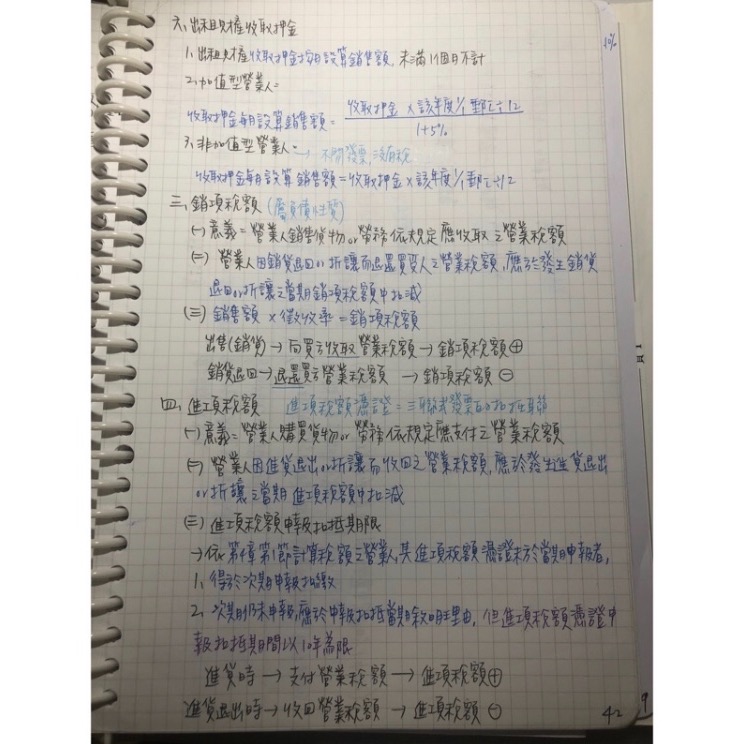 六、出租財產收取押金
1、出租財產收取押金按月設算銷售額,未滿1個月不計
2、加值型營業人:
收取押金每月設算銷售額=收取押金×該年度1/1郵匯÷12
1+5%
3、非加值型營業人:→不開發票,沒有稅
收取押金每月設算銷售額=收取押金×該年度1/1郵匯÷12
三、銷項稅額(屬負債性質)
(一)意義=營業人銷售貨物or勞務依規定應收取之營業稅額
(二)營業人因銷貨退回or折讓而退還買受人之營業稅額,應於發生銷貨
退回or折讓之當期銷項稅額中扣減
(三)銷售額×徵收率=銷項稅額
出售(銷貨)→向買方收取營業稅額→銷項稅額⊕
銷貨退回→退還買方營業稅額→銷項稅額⊖
四、進項稅額 進項稅額憑證=三聯式發票的扣抵聯
(一)意義=營業人購買貨物or勞務依規定應支付之營業稅額
(二)營業人因進貨退出or折讓而收回之營業稅額,應於發生進貨退出
or折讓之當期進項稅額中扣減
(三)進項稅額申報扣抵期限
→依第4章第1節計算稅額之營業人,其進項稅額憑證未於當期申報者,
1、得於次期申報扣繳
2、次期仍未申報,應於申報扣抵當期敘明理由,但進項稅額憑證申
報扣抵期間以10年為限
進貨時→支付營業稅額→進項稅額⊕
進貨退出時→收回營業稅額→進項稅額⊖
42
10%
9